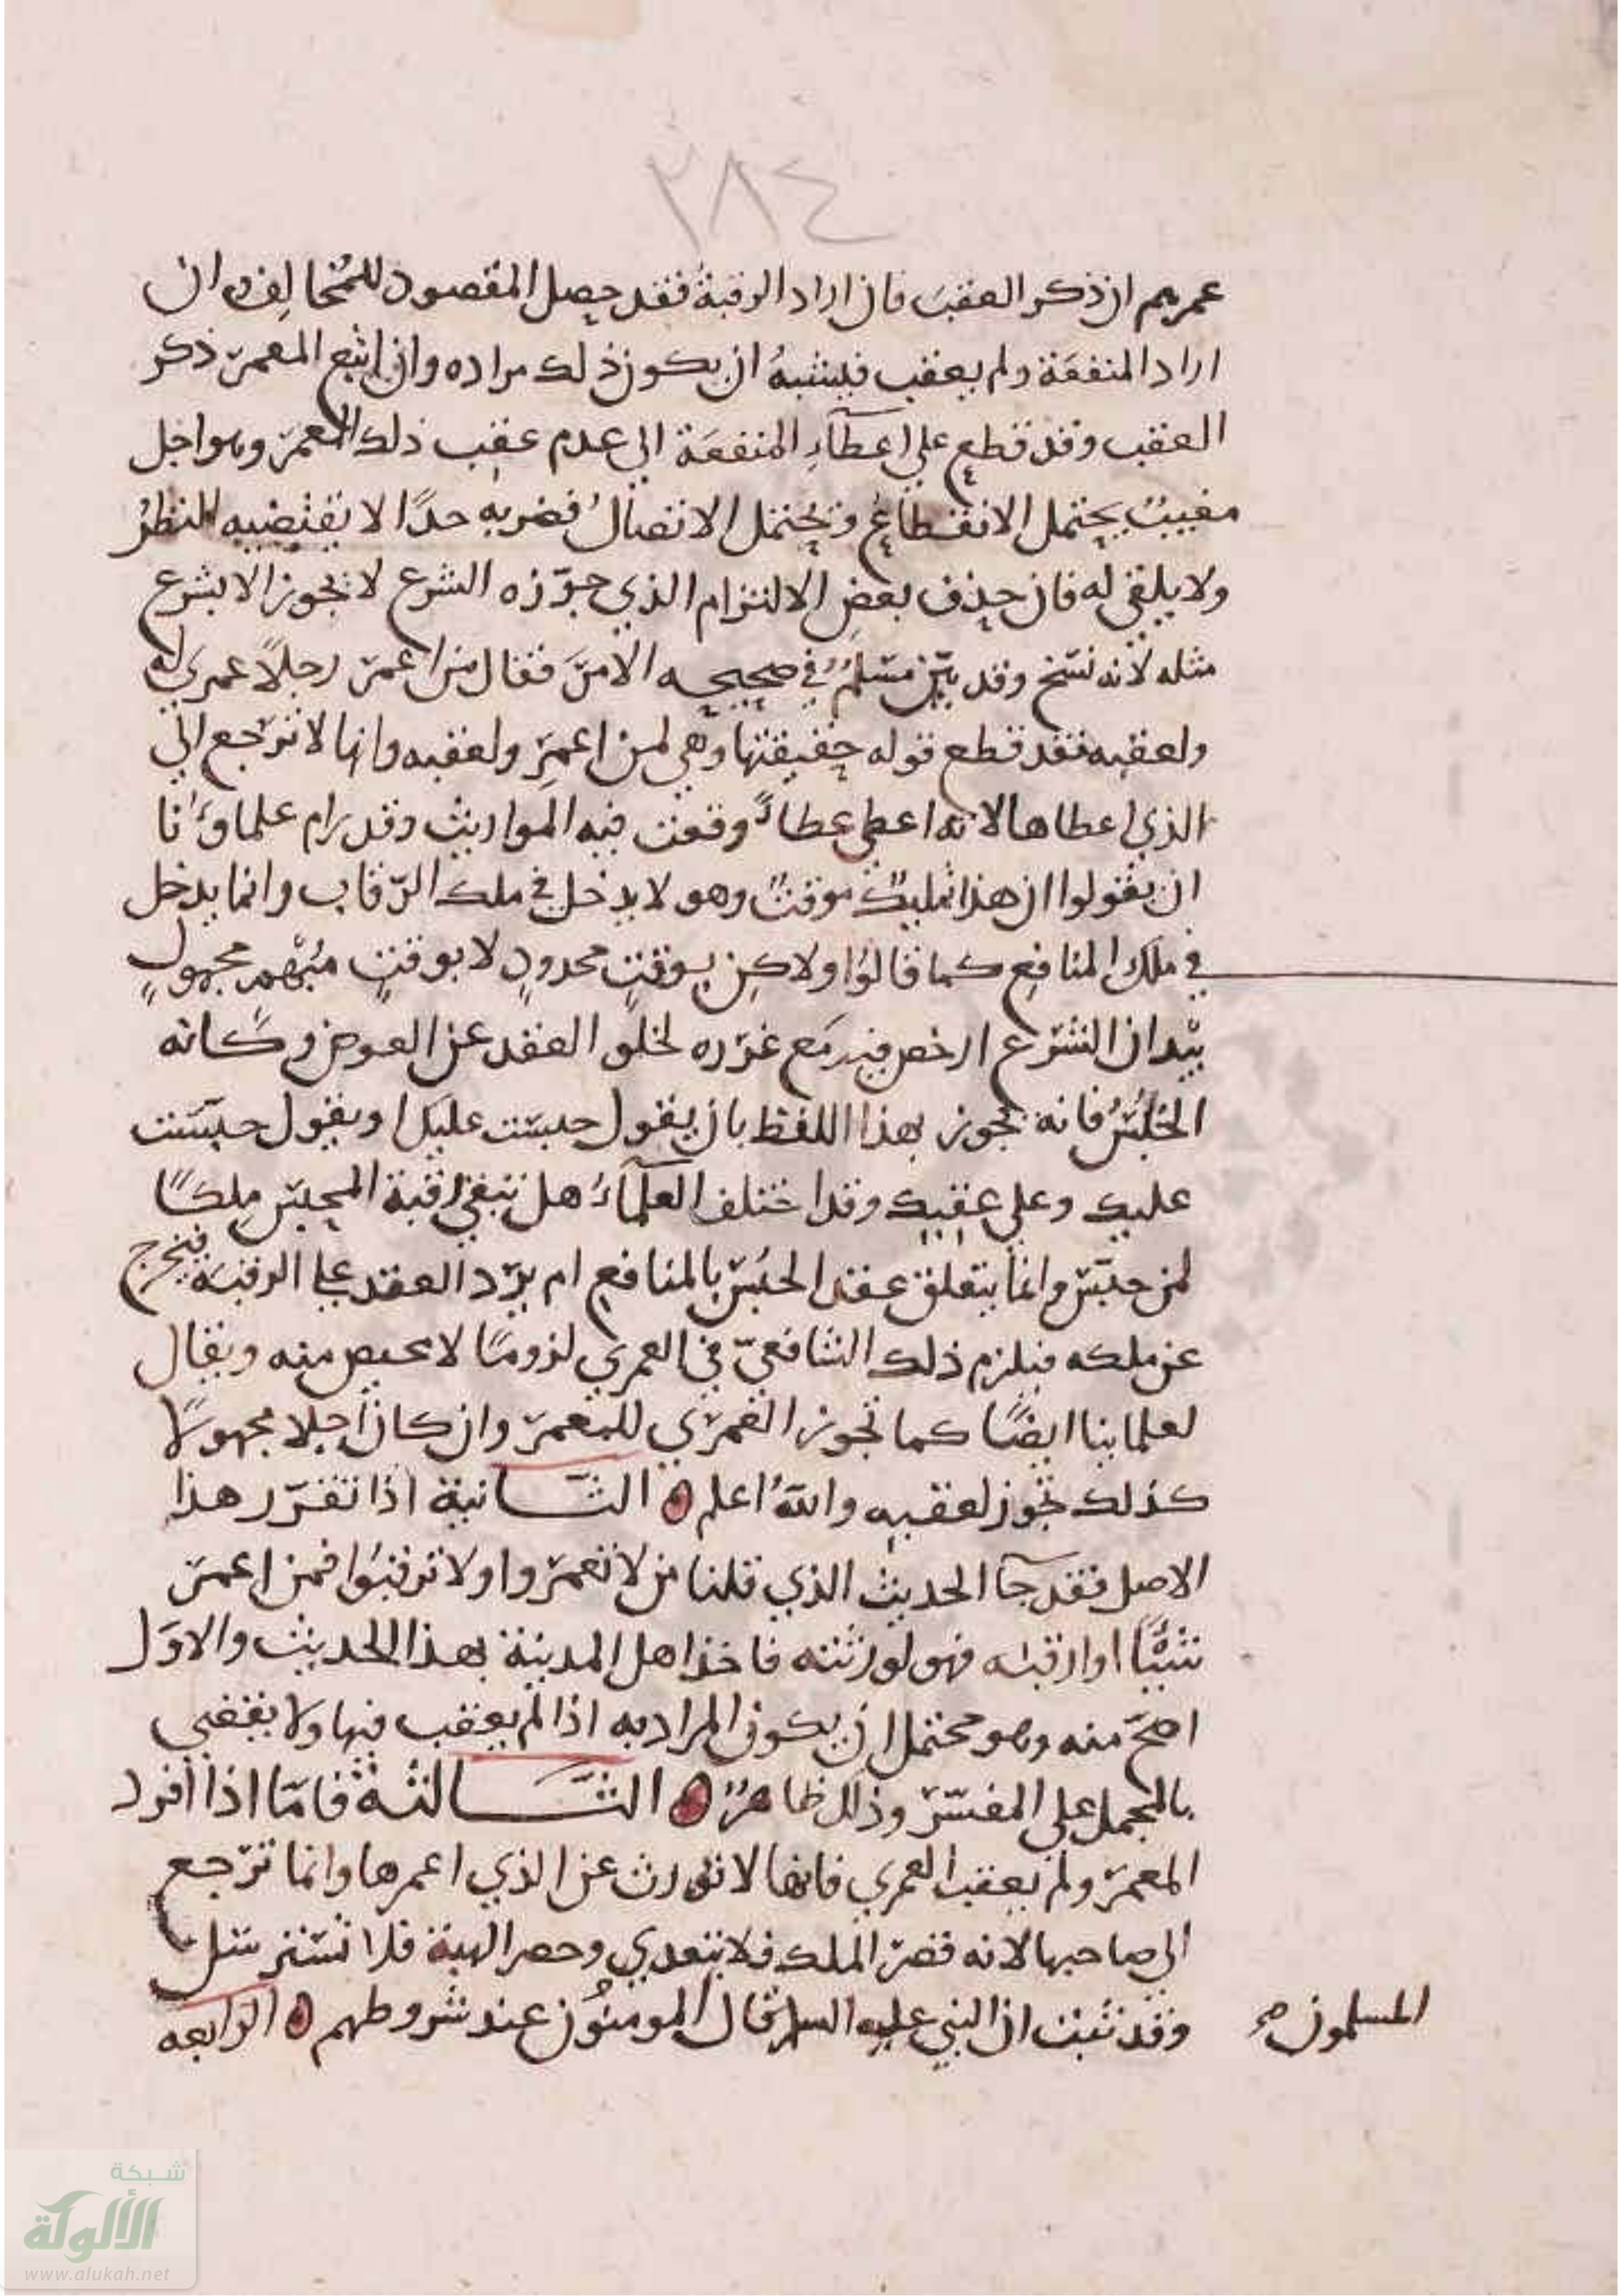 ٢٨٤
عمرهم ان ذكر العقب فان اراد الرقبة فقد حصل المقصود للمخالف وان
اراد المنفعة ولم يعقب فيشبه ان يكون ذلك مراده وان اتبع المعمر ذكر
العقب وقد قطع على اعطاء المنفعة الى عدم عقب ذلك المعمر وهو اجل
مغيب يحتمل الانقطاع ويحتمل الاتصال فضربه حدا لا يقتضيه النظر
ولا يلقى له فان حذف بعض الالتزام الذي جوزه الشرع لا يجوز الا بشرع
مثله لانه نسخ وقد بين مسلم في صحيحه الامر فقال من اعمر رجلا عمرى له
ولعقبه فقد قطع قوله حقيقتها وهي لمن اعمر ولعقبه وانها لا ترجع الى
الذي اعطاها لانه اعطى عطاء وقعت فيه المواريث وقد رام علماونا
ان يقولوا ان هذا تمليك موقت وهو لا يدخل في ملك الرقاب وانما يدخل
في ملك المنافع كما قالوا ولاكن بوقت محدود لا بوقت مبهم مجهول
بيد ان الشرع ارخص فيه مع غرره لخلو العقد عن العوض وكانه
الحبس فانه يجوز بهذا اللفظ بان يقول حبست عليك او يقول حبست
عليك وعلى عقبك وقد اختلف العلماء هل تبقى رقبة المحبس ملكا
لمن حبس وانما يتعلق عقد الحبس بالمنافع ام يرد العقد على الرقبة فيخرج
عن ملكه فيلزم ذلك الشافعي في العمرى لزوما لا محيص منه ويقال
لعلماينا ايضا كما تجوز العمرى للمعمر وان كان اجلا مجهولا
كذلك تجوز لعقبه والله اعلم ۞ الثانية اذا تقرر هذا
الاصل فقد جا الحديث الذي قلنا من لا تعمروا ولا ترقبوا فمن اعمر
شيئا او ارقبه فهو لورثته فاخذ اهل المدينة بهذا الحديث والاول
اصح منه وهو محتمل ان يكون المراد به اذا لم يعقب فيها ولا يقضى
بالمجمل على المفسر وذلك ظاهر ۞ الثالثة فاما اذا افرد
المعمر ولم يعقب العمرى فانها لا تورث عن الذي اعمرها وانما ترجع
الى صاحبها لانه قصر الملك فلا يتعدى وحصر الهبة فلا تسترسل
وقد ثبت ان النبي عليه السلم قال المومنون عند شروطهم ۞ الرابعه
المسلمون صح
شبكة
الألوكة
www.alukah.net